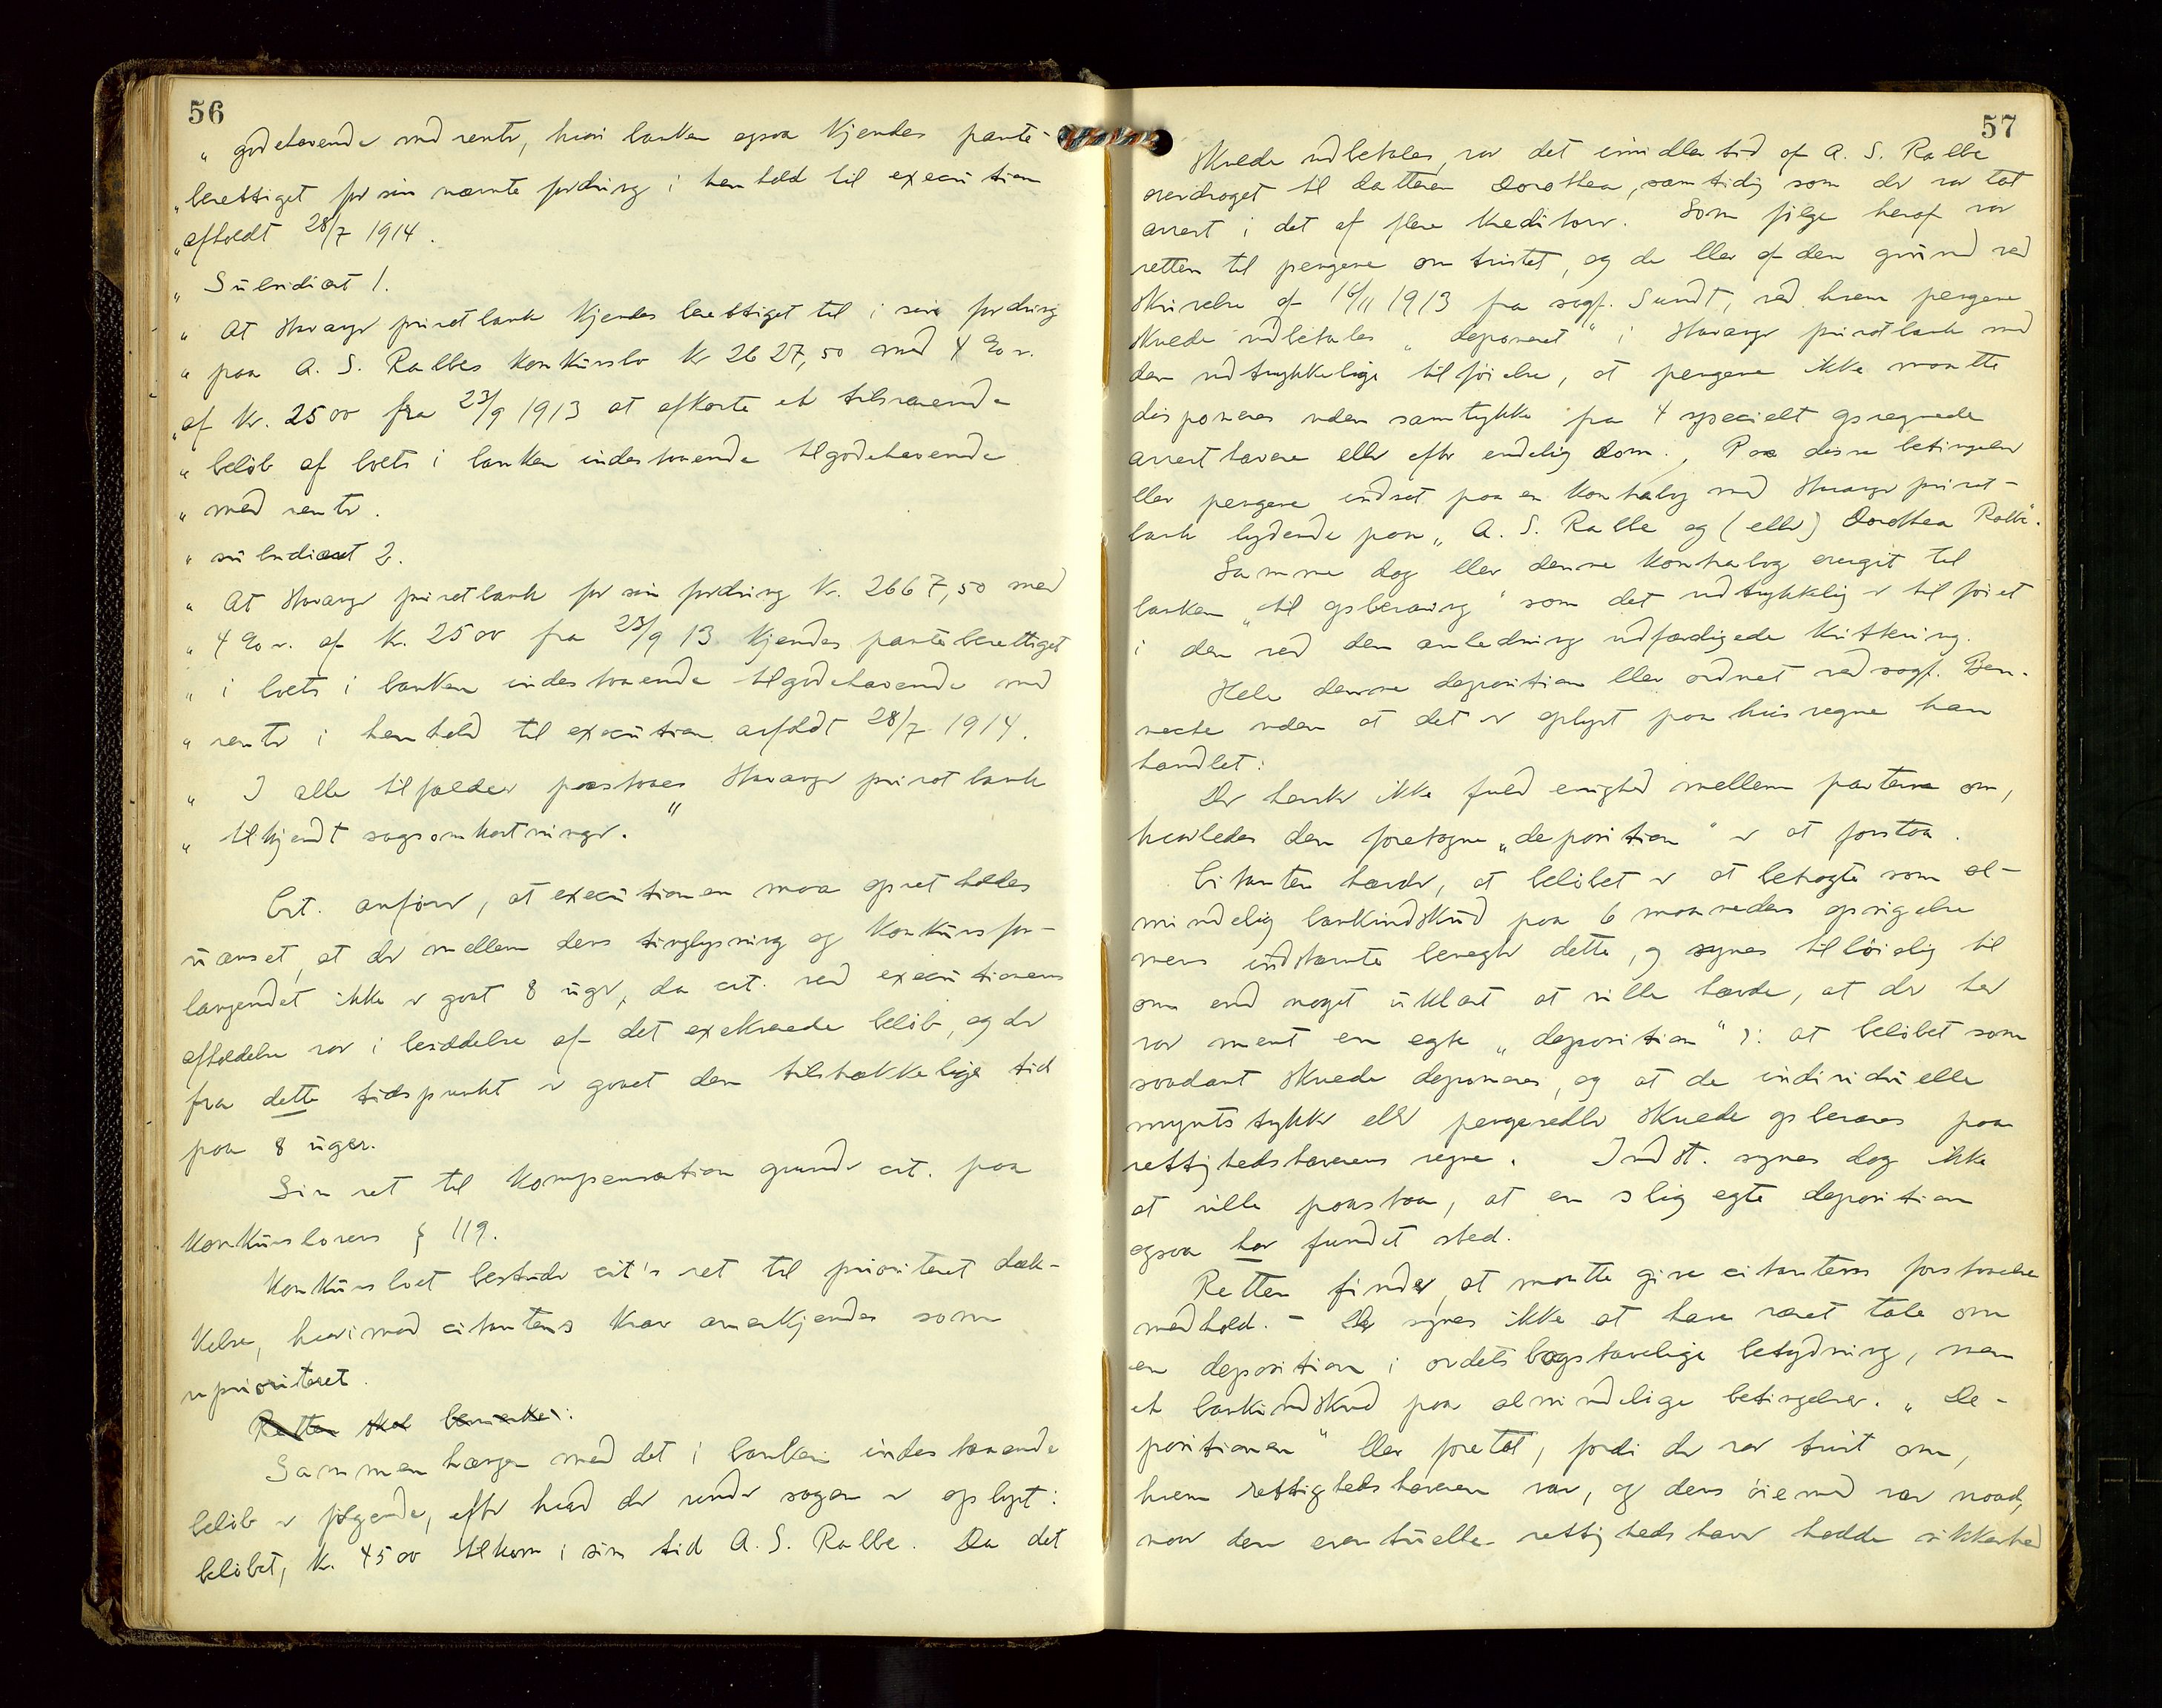 56
" godehavende med renter, hvori banken ogsaa kjendes pante-
" berettiget for sin nævnte fordring i henhold til execution
" afholdt 28/7 1914.
" Subsidiært 1.
" At Stavanger privatbank kjendes berettiget til i sin fordring
" paa A. S. Rabbes konkursbo kr 2627,50 med 4 % r.
" af kr. 2500 fra 23/9 1913 at afkorte et tilsvarende
" beløb af boets i banken indestaaende tilgodehavende
" med renter.
" subsidiært 2.
" At Stavanger privatbank for sin fordring kr. 2667,50 med
" 4 % r. af kr. 2500 fra 23/9 13 kjendes panteberettiget
" i boets i banken indestaaende tilgodehavende med
" renter i henhold til execution avholdt 28/7 1914.
" I alle tilfælder paastaaes Stavanger privatbank
" tilkjendt sagsomkostninger. "
Cit. anfører, at executionen maa opretholdes
uanset, at der mellem dens tinglysning og konkursfor-
langendet ikke er gaat 8 uger, da cit. ved executionens
afholdelse var i besiddelse af det exekverede beløb, og der
fra dette tidspunkt er gaaet den tilstrækkelige tid
paa 8 uger.
Sin ret til kompensation grunder cit. paa
Konkurslovens § 119.
Konkursboet bestrider cit's ret til prioriteret dæk-
kelse, hvorimod citantens krav anerkjendes som
uprioriteret.
Retten skal bemerke:
Sammenhængen med det i banken indestaaende
beløb er følgende, efter hvad der under sagen er oplyst:
beløbet, kr. 4500 tilkom i sin tid A. S. Rabbe. Da det
57
skulde udbetales, var det imidlertid af A. S. Rabbe
overdraget til datteren Dorothea, samtidig som der var tat
arrest i det af flere kreditorer. Som følge heraf var
retten til pengene omtvistet, og de blev af den grund ved
skrivelse af 18/11 1913 fra sagf. Sundt, ved hvem pengene
skulde udbetales "deponeret" i Stavanger privatbank med
den udtrykkelige tilføielse, at pengene ikke maatte
disponeres uden samtykke fra 4 specielt opregnede
arresthavere eller efter endelig dom. Paa disse betingelser
blev pengene indsat paa en kontrabog med Stavanger privat-
bank lydende paa " A. S. Rabbe og (eller) Dorothea Rabbe".
Samme dag blev denne kontrabog overgit til
banken "til opbevaring" som det udtrykkelig er tilføiet
i den ved den anledning udfærdigede kvittering.
Hele denne deposition blev ordnet ved sagf. Ben-
neche uden at det er oplyst paa hvis vegne han
handlet:
Der hersker ikke fuld enighed mellem parterne om,
hvorledes den foretagne "deposition" er at forstaa.
Citanten hævder, at beløbet er at betragte som al-
mindelig bankindskud paa 6 maaneders opsigelse
mens indstævnte benegter dette, og synes tilbøielig til
om end noget uklart at ville hævde, at der her
var ment en egte "deposition" ɔ: at beløbet som
saadant skulde deponeres, og at de individuelle
myntstykker eller pengesedler skulde opbevares paa
rettighedshaverens vegne. Indst. synes dog ikke
at ville paastaa, at en slig egte deposition
ogsaa har fundet sted.
Retten finder, at maatte give citantens forstaaelse
medhold. - Der synes ikke at have været tale om
en deposition i ordets bogstavelige betydning, men
et bankindskud paa almindelige betingelser. "De-
positionen" blev foretat, fordi der var tvist om,
hvem rettighedshaveren var, og dens øiemed var naad,
naar den eventuelle rettighedshaver hadde sikkerhed